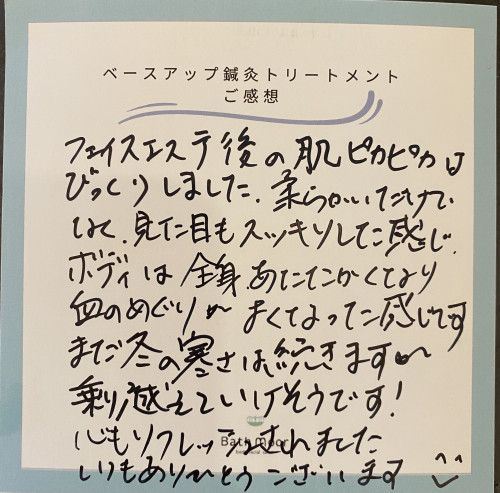 ベースアップ鍼灸トリートメント
ご感想
フェイスエステ後の肌ピカピカは
びっくりしました。柔らかいだけで
なく、見た目もスッキリした感じ。
ボディは全身あたたかくなり
血のめぐりが よくなった感じです
まだ冬の寒さは続きますが
乗り越えていけそうです!
心もリフレッシュされました
Bath moor
いつもありがとうございます